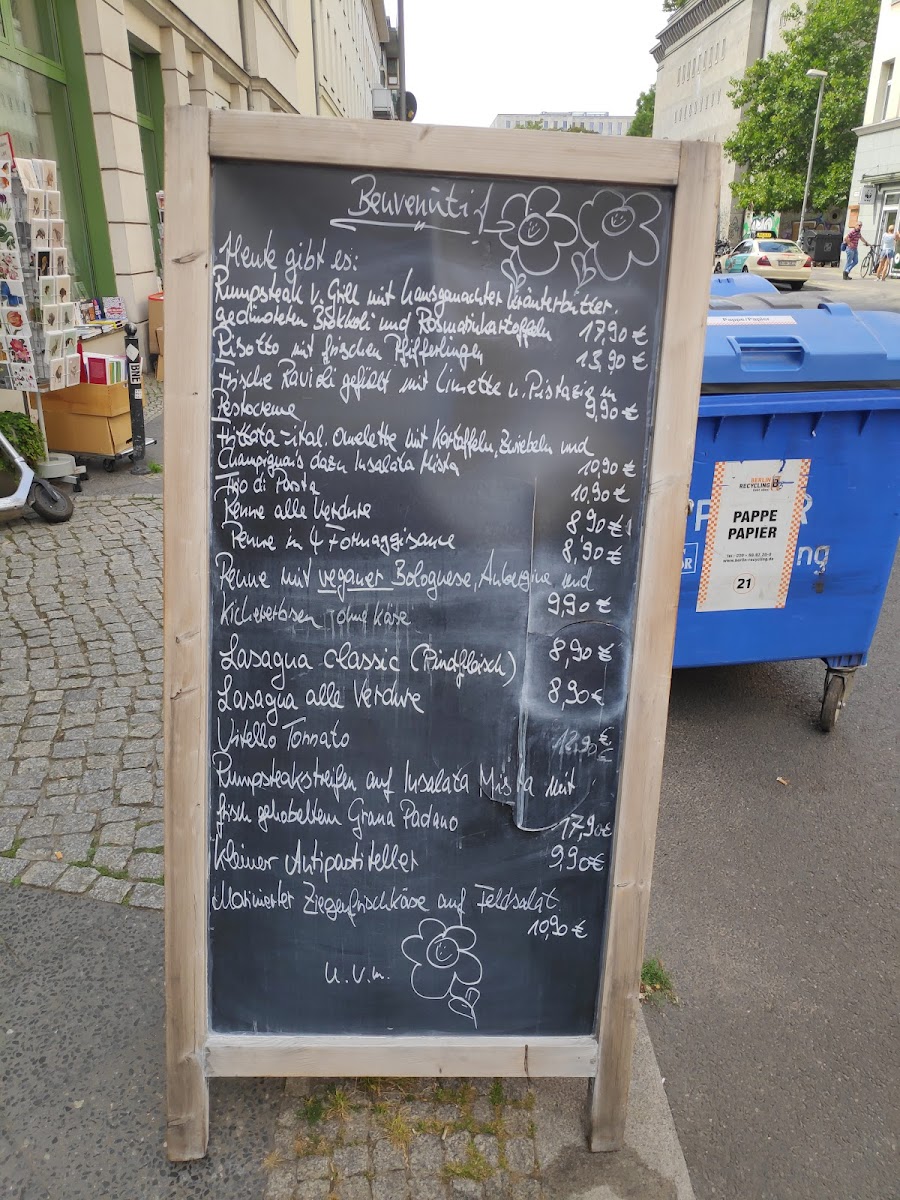 Benvenuti!
Heute gibt es:
Rumpsteak v. Grill mit hausgemachter Kräuterbutter,
gedünsteten Brokkoli und Rosmarinkartoffeln 17,90 €
Risotto mit frischen Pfifferlingen 13,90 €
frische Ravioli gefüllt mit Limette u. Pistazie in
Pestocreme 9,90 €
Frittata-ital. Omelette mit Kartoffeln, Zwiebeln und
Champignais dazu Insalata Mista 10,90 €
Trio di Pasta 10,90 €
Penne alle Verdure 8,90 €
Penne in 4 Formaggisauce 8,90 €
Penne mit veganer Bolognese, Aubergine und
Kichererbsen ohne Käse 9,90 €
Lasagna classic (Rindfleisch) 8,90 €
Lasagna alle Verdure 8,90 €
Vitello Tonnato 12,90 €
Rumpsteakstreifen auf Insalata Mista mit
frisch gehobeltem Grana Padano 17,90 €
kleiner Antipastiteller 9,90 €
Marinierter Ziegenfrischkäse auf Feldsalat
10,90 €
u.v.m.
Pappe/Papier
BERLIN
RECYCLING
PAPPE
PAPIER
www.berlin-recycling.de
21
ng
BNE